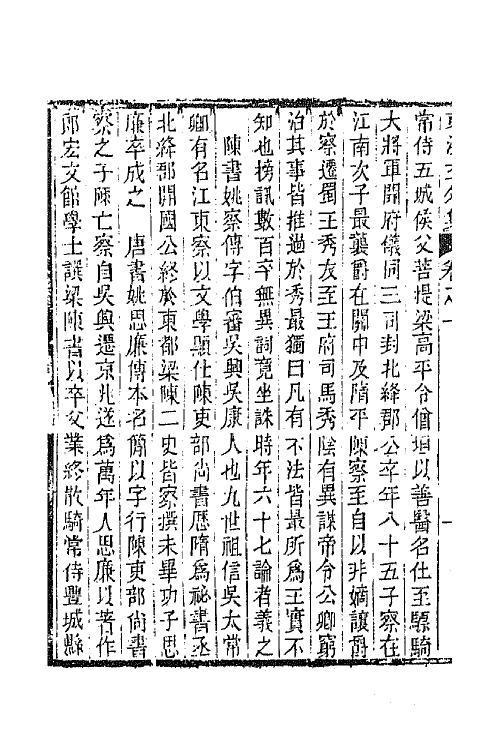 常侍五城侯父菩提梁高平令僧垣以善醫名仕至驃騎
大將軍開府儀同三司封北絳郡公卒年八十五子察在
江南次子最襲爵在關中及隋平陳察至自以非嫡讓爵
於察遷蜀王秀友至王府司馬秀陰有異謀帝令公卿窮
治其事皆推過於秀最獨曰凡有不法皆最所為王實不
知也搒訊數百卒無異詞竟坐誅時年六十七論者義之
陳書姚察傳字伯審吳興吳康人也九世祖信吳太常
卿有名江東察以文學顯仕陳吏部尚書歷隋為祕書丞
北絳郡開國公終於東都梁陳二史皆察撰未畢功子思
廉卒成之　唐書姚思廉傳本名簡以字行陳吏部尚書
察之子陳亡察自吳興遷京兆遂為萬年人思廉以著作
郎宏文館學士譔梁陳書以卒父業終散騎常侍豐城縣